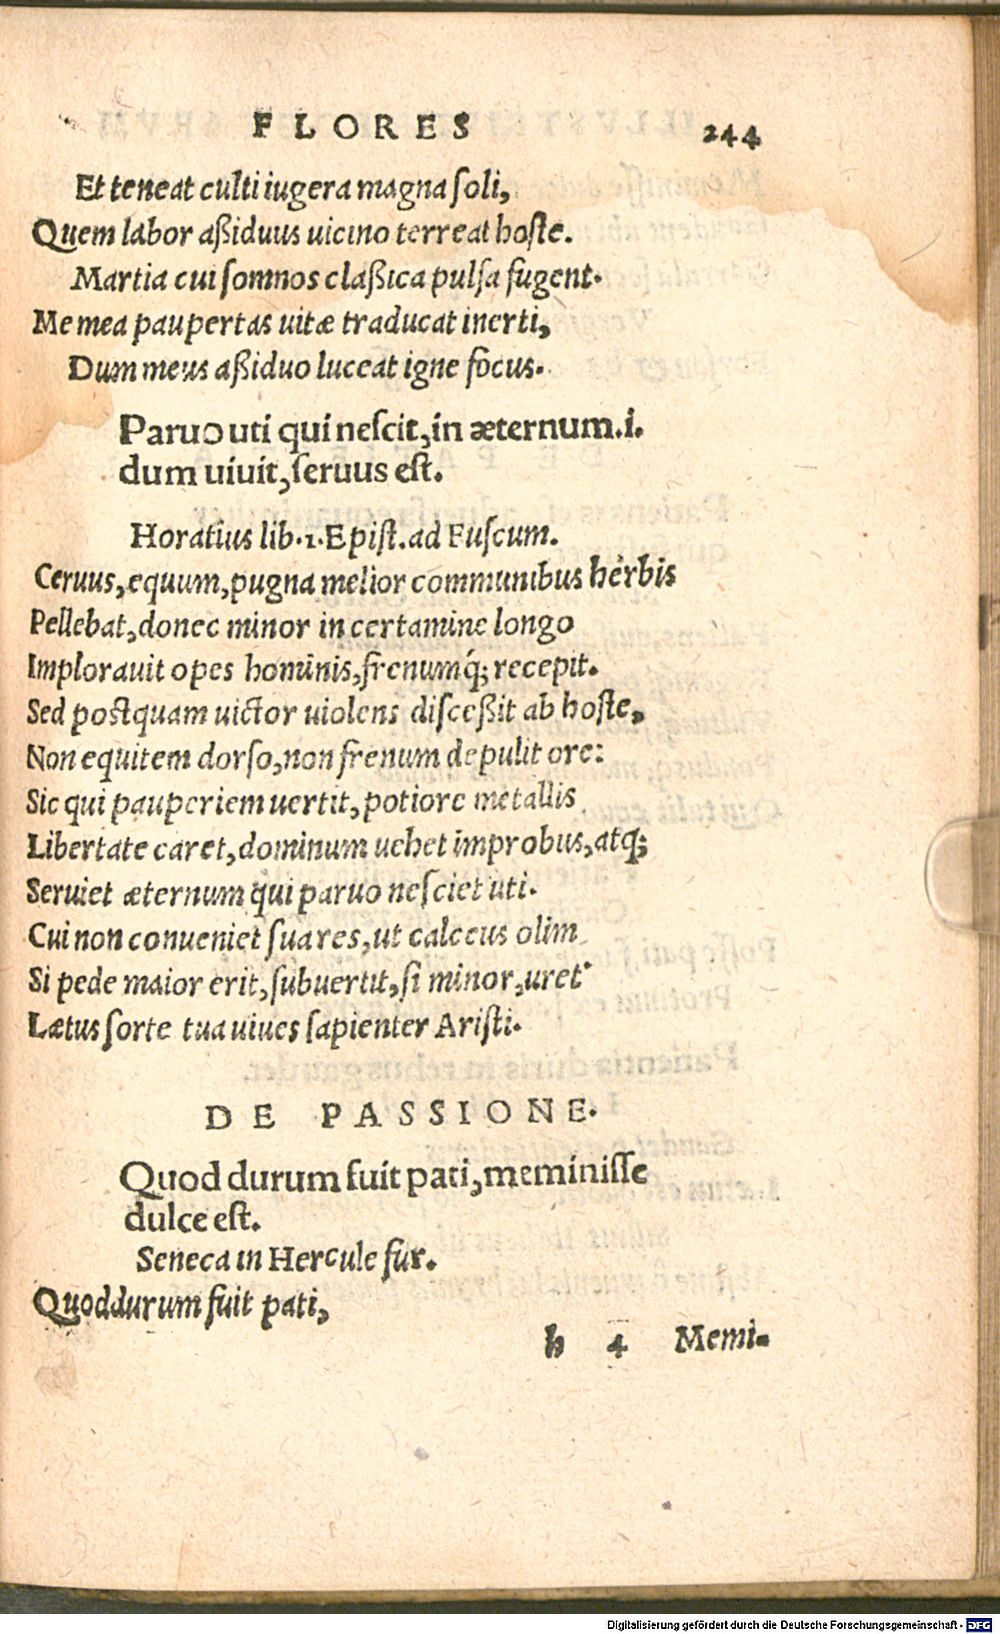 FLORES 244
Et teneat culti iugera magna soli,
Quem labor aßiduus uicino terreat hoste.
Martia cui somnos claßica pulsa fugent.
Me mea paupertas uitæ traducat inerti,
Dum meus aßiduo luceat igne focus.
Paruo uti qui nescit, in æternum .i.
dum uiuit, seruus est.
Horatius lib. 1. Epist. ad Fuscum.
Ceruus, equum, pugna melior communibus herbis
Pellebat, donec minor in certamine longo
Implorauit opes hominis, frenumq́; recepit.
Sed postquam uictor uiolens disceßit ab hoste,
Non equitem dorso, non frenum depulit ore:
Sic qui pauperiem uertit, potiore metallis
Libertate caret, dominum uehet improbus, atq;
Seruiet æternum qui paruo nesciet uti.
Cui non conueniet sua res, ut calceus olim
Si pede maior erit, subuertit, si minor, uret.
Lætus sorte tua uiues sapienter Aristi.
DE PASSIONE.
Quod durum fuit pati, meminisse
dulce est.
Seneca in Hercule fur.
Quod durum fuit pati,
h 4 Memi-
Digitalisierung gefördert durch die Deutsche Forschungsgemeinschaft - DFG